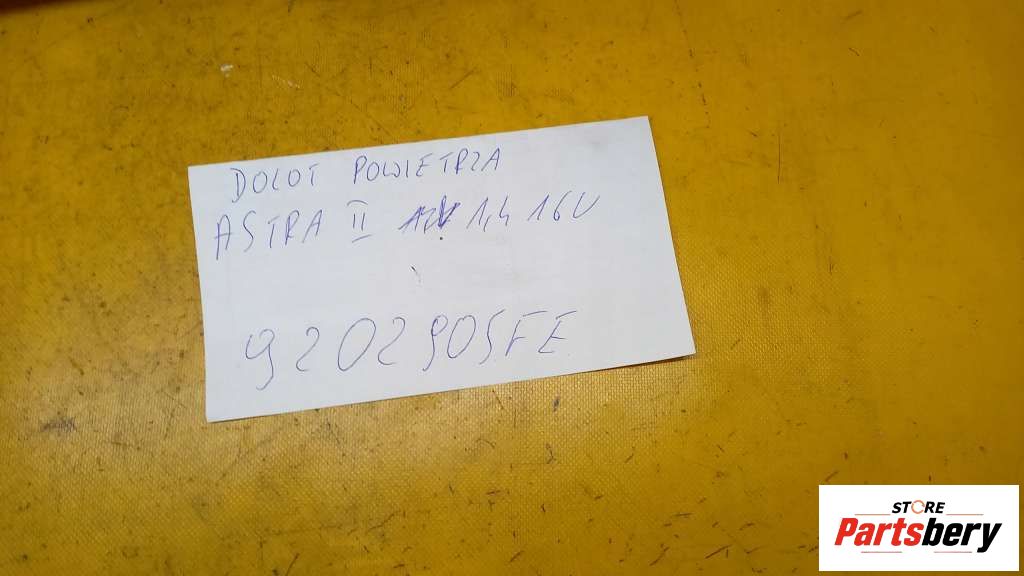 DOLOT POWIETRZA
ASTRA II 1,4 16V
9202905FE
STORE
Partsbery